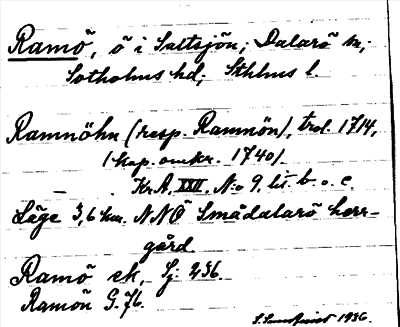 Ramö, ö i Saltsjön; Dalarö sn;
Sotholms hd; Sthlms l.
Ramnöhn (resp. Ramnön), trol. 1714,
(kop. omkr. 1740).
Kr.A. XXII, N:o 9, lit. b o. c.
Läge 3,6 km. NNÖ Smådalarö herr-
gård.
Ramö ek. Sj. 236.
Ramön G.76.
1936.